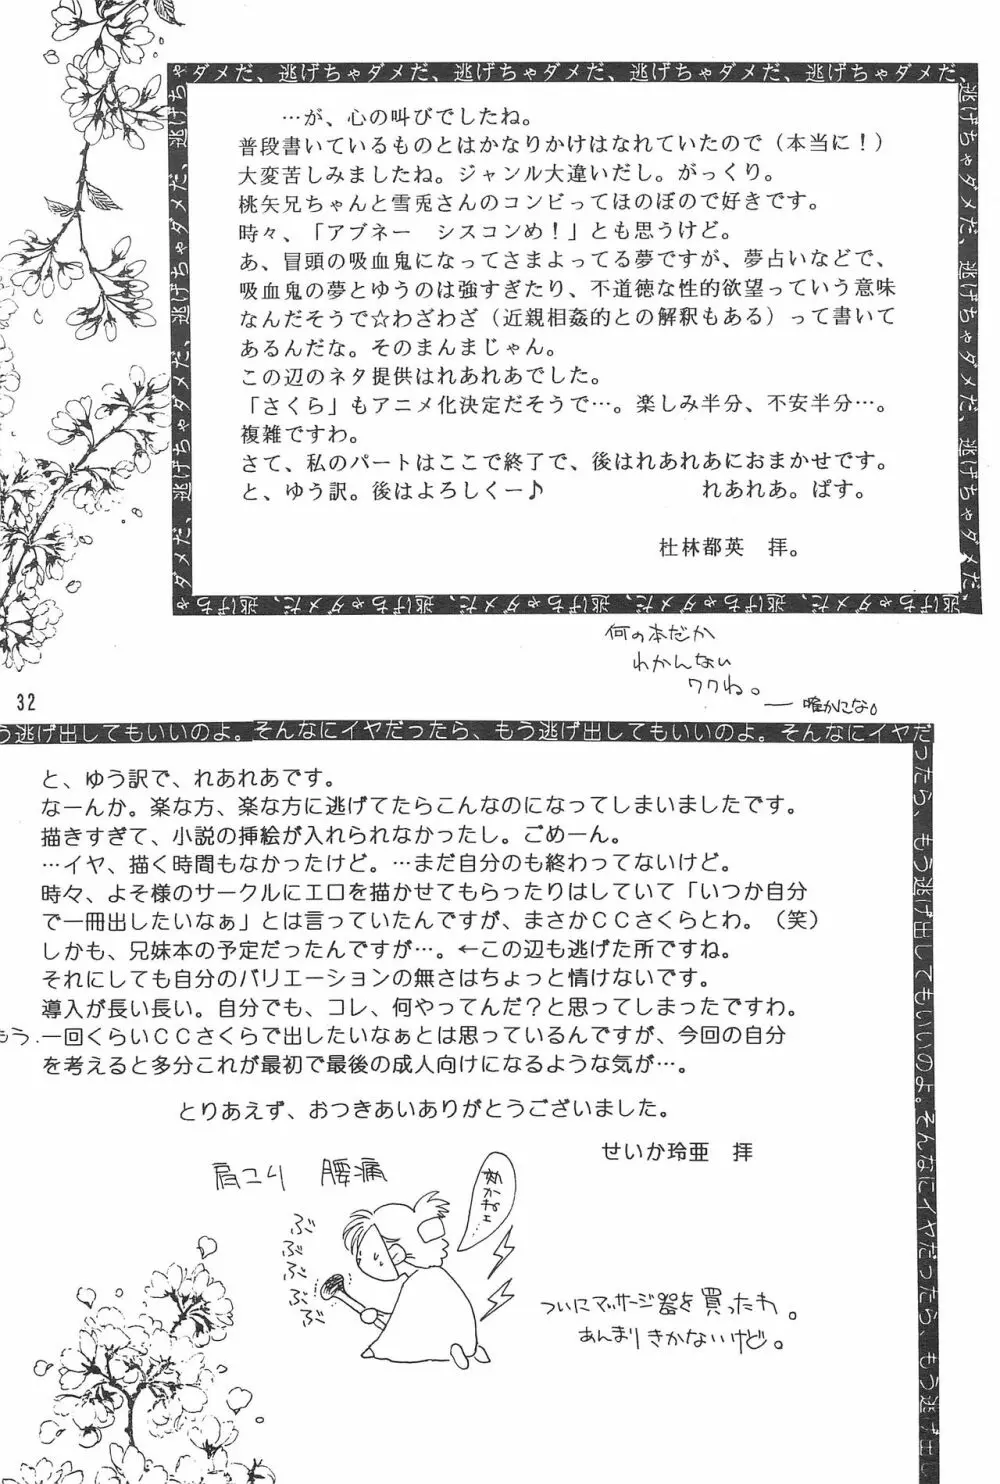 ゃダメだ、逃げちゃダメだ、逃げちゃダメだ、逃げちゃダメだ、
…が、心の叫びでしたね。
普段書いているものとはかなりかけはなれていたので（本当に！）
大変苦しみましたね。ジャンル大違いだし。がっくり。
桃矢兄ちゃんと雪兎さんのコンビってほのぼので好きです。
時々、「アブネー　シスコンめ！」とも思うけど。
あ、冒頭の吸血鬼になってさまよってる夢ですが、夢占いなどで、
吸血鬼の夢とゆうのは強すぎたり、不道徳な性的欲望っていう意味
なんだそうで☆わざわざ（近親相姦的との解釈もある）って書いて
あるんだな。そのまんまじゃん。
この辺のネタ提供はれあれあでした。
「さくら」もアニメ化決定だそうで…。楽しみ半分、不安半分…。
複雑ですわ。
さて、私のパートはここで終了で、後はれあれあにおまかせです。
と、ゆう訳。後はよろしくー♪　れあれあ。ぱす。
杜林都英　拝。
何の本だか
わかんない
ワクね。
―確かにな。
32
う逃げ出してもいいのよ。そんなにイヤだったら、もう逃げ出してもいいのよ。そんなにイヤだ
ったら、もう逃げ出してもいいのよ。そんなにイヤだったら、もう逃げ出し
と、ゆう訳で、れあれあです。
なーんか。楽な方、楽な方に逃げてたらこんなのになってしまいましたです。
描きすぎて、小説の挿絵が入れられなかったし。ごめーん。
…イヤ、描く時間もなかったけど。…まだ自分のも終わってないけど。
時々、よそ様のサークルにエロを描かせてもらったりはしていて「いつか自分
で一冊出したいなぁ」とは言っていたんですが、まさかＣＣさくらとわ。（笑）
しかも、兄妹本の予定だったんですが…。←この辺も逃げた所ですね。
それにしても自分のバリエーションの無さはちょっと情けないです。
導入が長い長い。自分でも、コレ、何やってんだ？と思ってしまったですわ。
もう.一回くらいＣＣさくらで出したいなぁとは思っているんですが、今回の自分
を考えると多分これが最初で最後の成人向けになるような気が…。
とりあえず、おつきあいありがとうございました。
せいか玲亜　拝
肩こり　腰痛
ぶぶぶぶぶ
ついにマッサージ器を買ったわ。
あんまりきかないけど。